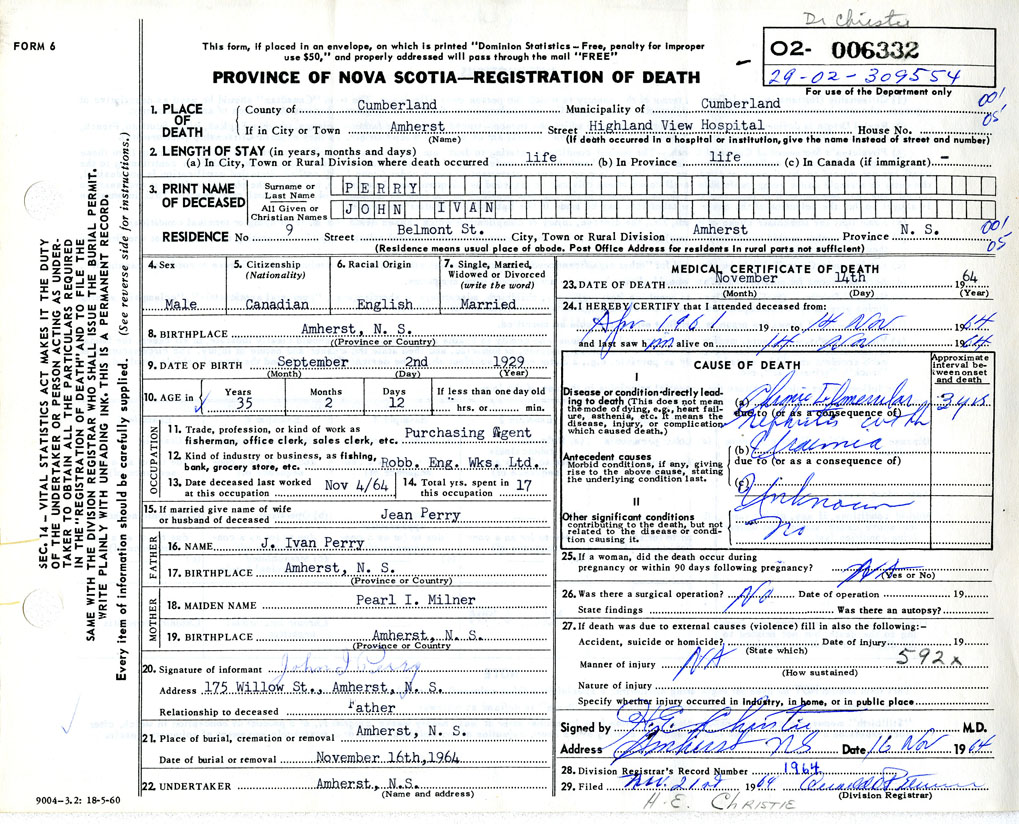 Dr Christie
FORM 6
This form, if placed in an envelope, on which is printed "Dominion Statistics – Free, penalty for improper
use $50," and properly addressed will pass through the mail "FREE"
O2- 006332
29-02-309554
For use of the Department only
PROVINCE OF NOVA SCOTIA—REGISTRATION OF DEATH
SEC. 14 – VITAL STATISTICS ACT MAKES IT THE DUTY
OF THE UNDERTAKER OR PERSON ACTING AS UNDER-
TAKER TO OBTAIN ALL THE PARTICULARS REQUIRED
IN THE "REGISTRATION OF DEATH" AND TO FILE THE
SAME WITH THE DIVISION REGISTRAR WHO SHALL ISSUE THE BURIAL PERMIT.
WRITE PLAINLY WITH UNFADING INK. THIS IS A PERMANENT RECORD.
Every item of information should be carefully supplied. (See reverse side for instructions.)
1. PLACE OF DEATH
County of Cumberland Municipality of Cumberland 001
05
If in City or Town Amherst Street Highland View Hospital House No.
(Name) (If death occurred in a hospital or institution, give the name instead of street and number)
2. LENGTH OF STAY (in years, months and days)
(a) In City, Town or Rural Division where death occurred life (b) In Province life (c) In Canada (if immigrant) –
3. PRINT NAME OF DECEASED
Surname or Last Name PERRY
All Given or Christian Names JOHN IVAN
RESIDENCE No 9 Street Belmont St. City, Town or Rural Division Amherst Province N. S. 001
05
(Residence means usual place of abode. Post Office Address for residents in rural parts not sufficient)
4. Sex
Male
5. Citizenship
(Nationality)
Canadian
6. Racial Origin
English
7. Single, Married,
Widowed or Divorced
(write the word)
Married
8. BIRTHPLACE Amherst, N. S.
(Province or Country)
9. DATE OF BIRTH September 2nd 1929
(Month) (Day) (Year)
10. AGE in Years 35 Months 2 Days 12 If less than one day old
hrs. or min.
OCCUPATION
11. Trade, profession, or kind of work as
fisherman, office clerk, sales clerk, etc. Purchasing Agent
12. Kind of industry or business, as fishing,
bank, grocery store, etc. Robb. Eng. Wks. Ltd.
13. Date deceased last worked
at this occupation Nov 4/64
14. Total yrs. spent in
this occupation 17
15. If married give name of wife
or husband of deceased Jean Perry
FATHER
16. NAME J. Ivan Perry
17. BIRTHPLACE Amherst, N. S.
(Province or Country)
MOTHER
18. MAIDEN NAME Pearl I. Milner
19. BIRTHPLACE Amherst, N. S.
(Province or Country
20. Signature of informant John I Perry
Address 175 Willow St., Amherst, N. S.
Relationship to deceased Father
21. Place of burial, cremation or removal Amherst, N. S.
Date of burial or removal November 16th,1964
22. UNDERTAKER Amherst, N.S.
(Name and address)
9004-3.2: 18-5-60
MEDICAL CERTIFICATE OF DEATH
23. DATE OF DEATH November 14th 1964
(Month) (Day) (Year)
24. I HEREBY CERTIFY that I attended deceased from:
Apr 1961 19 to 14 Nov 1964
and last saw him alive on 14 Nov 1964
CAUSE OF DEATH
Approximate
interval be-
tween onset
and death
I
Disease or condition directly lead-
ing to death (This does not mean
the mode of dying, e.g., heart fail-
ure, asthenia, etc. It means the
disease, injury, or complication
which caused death.)
(a) Chronic Glomerular 3 yrs
due to (or as a consequence of)
Nephritis with
(b) Uraemia
Antecedent causes
Morbid conditions, if any, giving
rise to the above cause, stating
the underlying condition last.
due to (or as a consequence of)
(c) Unknown
II
Other significant conditions
contributing to the death, but not
related to the disease or condi-
tion causing it.
No
25. If a woman, did the death occur during
pregnancy or within 90 days following pregnancy? NA
(Yes or No)
26. Was there a surgical operation? No Date of operation 19
State findings Was there an autopsy?
27. If death was due to external causes (violence) fill in also the following:–
Accident, suicide or homicide? Date of injury 19
(State which)
Manner of injury NA 592x
(How sustained)
Nature of injury
Specify whether injury occurred in industry, in home, or in public place
Signed by H.E. Christie M.D.
Address Amherst NS Date 16 Nov 1964
28. Division Registrar's Record Number 1964
29. Filed Nov. 21rd 1964
(Division Registrar)
H. E. CHRISTIE